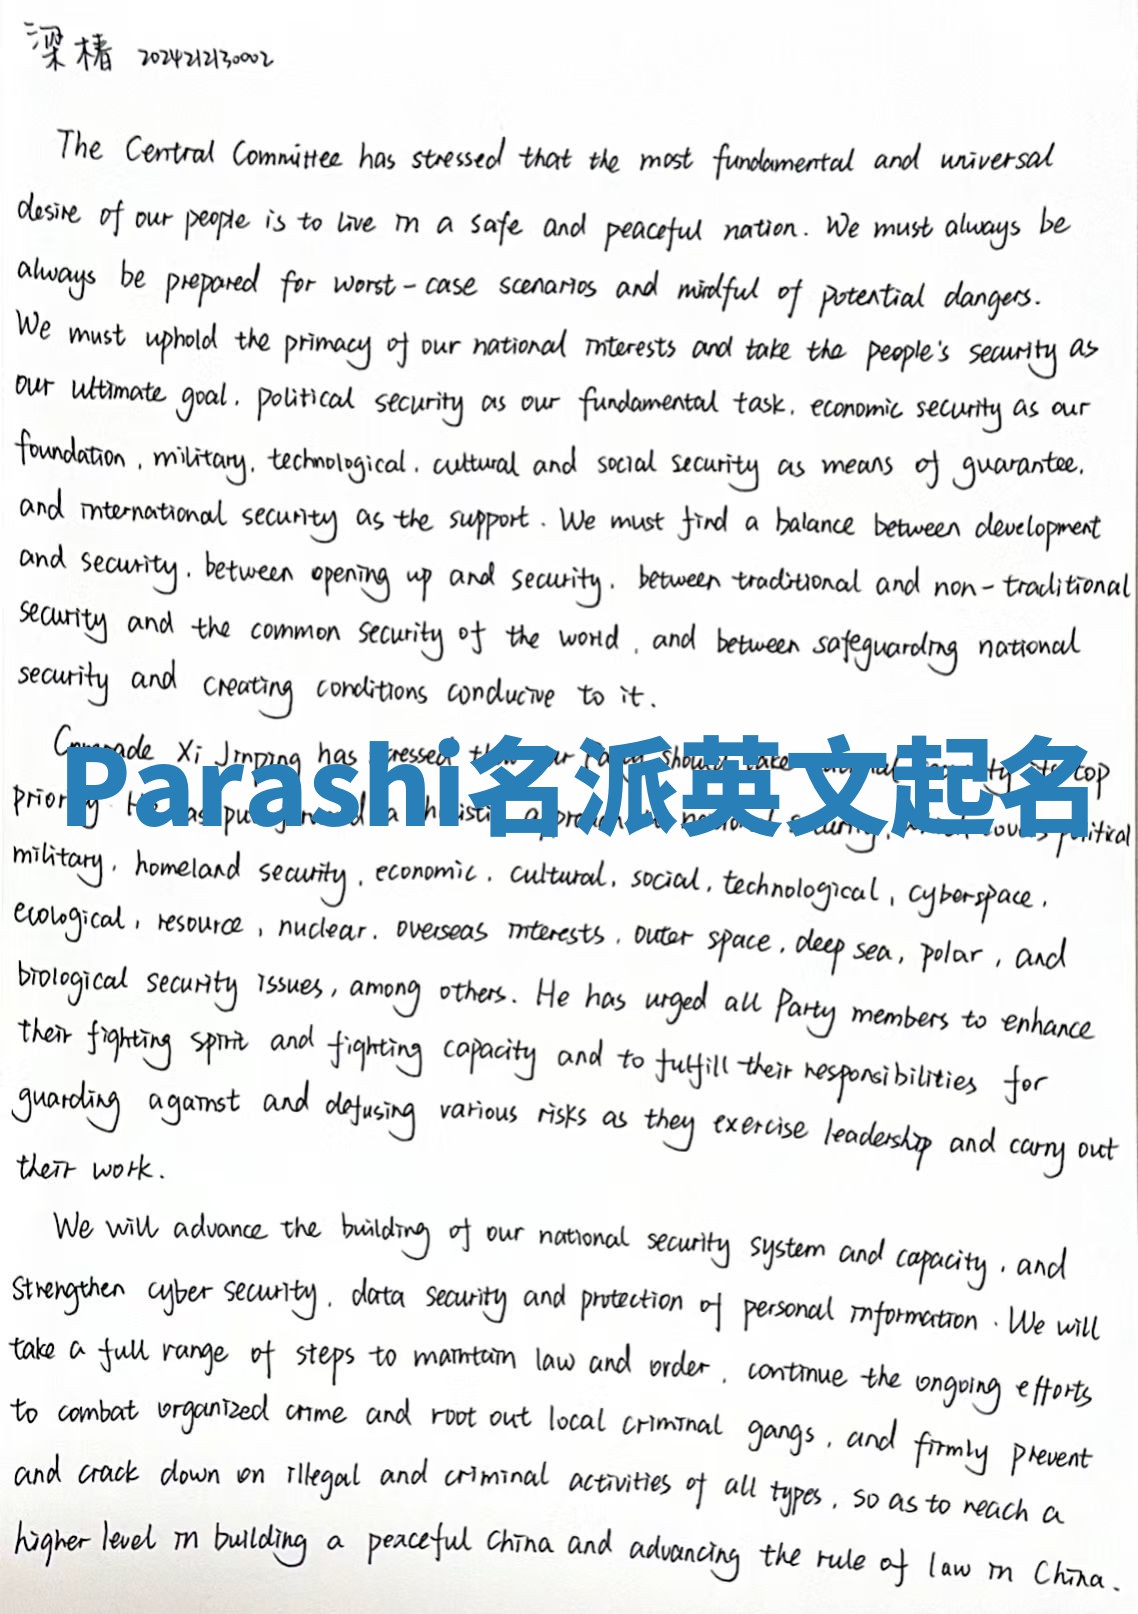 梁椿 2024212130002
The Central Committee has stressed that the most fundamental and universal
desire of our people is to live in a safe and peaceful nation. We must always be
always be prepared for worst-case scenarios and mindful of potential dangers.
We must uphold the primacy of our national interests and take the people's security as
our ultimate goal, political security as our fundamental task, economic security as our
foundation, military, technological, cultural and social security as means of guarantee,
and international security as the support. We must find a balance between development
and security, between opening up and security, between traditional and non-traditional
security and the common security of the world, and between safeguarding national
security and creating conditions conducive to it.
Comrade Xi Jinping has stressed that our Party should take its top
Parashi名派英文起名
priority. He has put a holistic approach national security, which covers political
military, homeland security, economic, cultural, social, technological, cyberspace,
ecological, resource, nuclear, overseas interests, outer space, deep sea, polar, and
biological security issues, among others. He has urged all Party members to enhance
their fighting spirit and fighting capacity and to fulfill their responsibilities for
guarding against and defusing various risks as they exercise leadership and carry out
their work.
We will advance the building of our national security system and capacity, and
strengthen cyber security, data security and protection of personal information. We will
take a full range of steps to maintain law and order, continue the ongoing efforts
to combat organized crime and root out local criminal gangs, and firmly prevent
and crack down on illegal and criminal activities of all types, so as to reach a
higher level in building a peaceful China and advancing the rule of law in China.